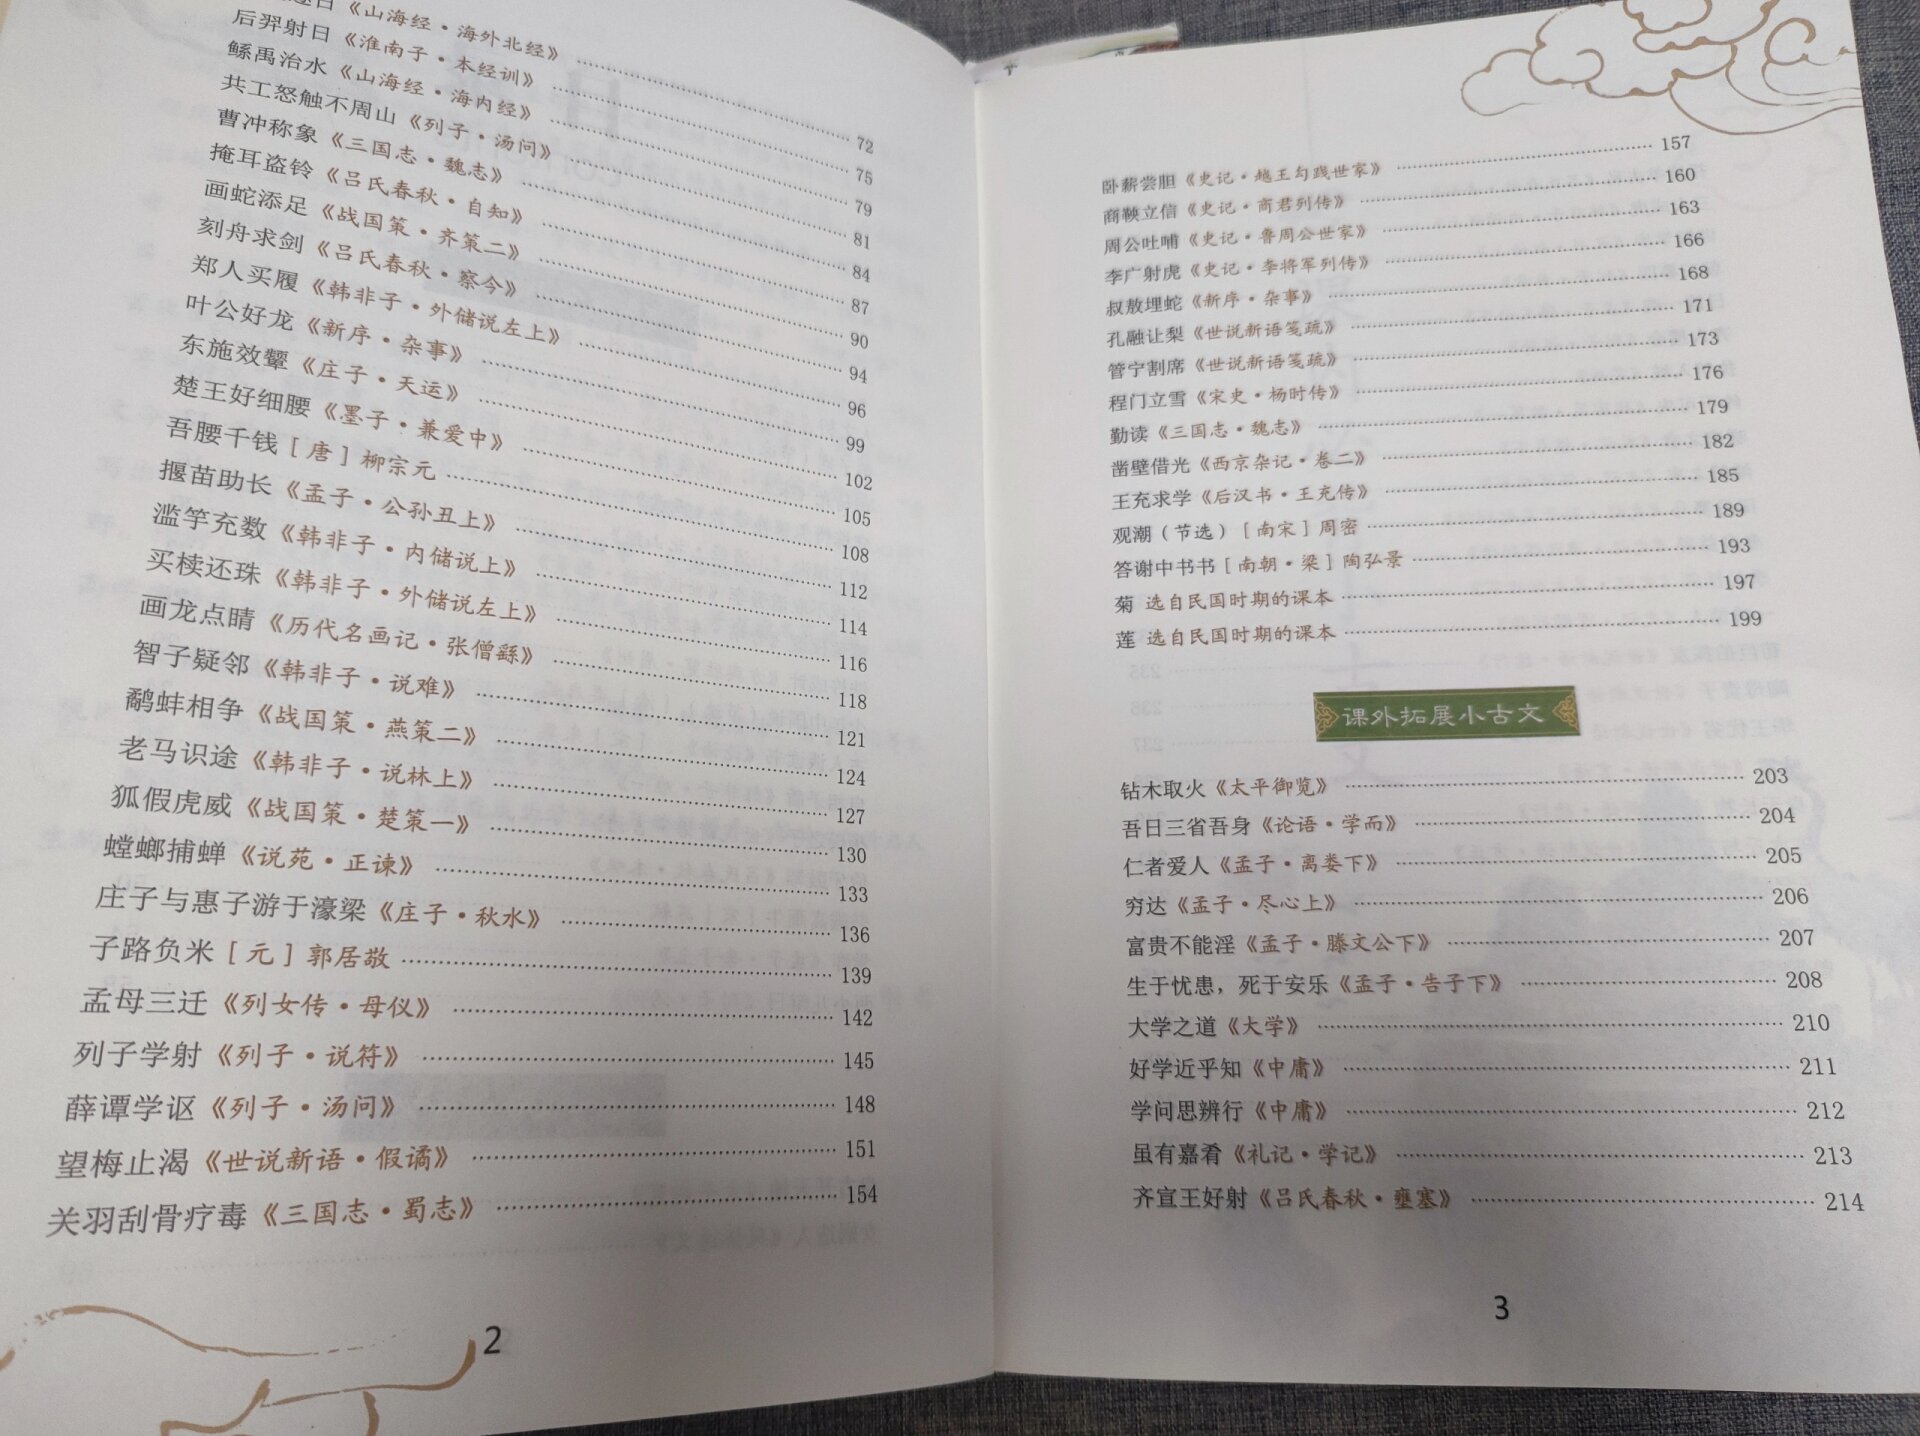 逐日《山海经·海外北经》 72
后羿射日《淮南子·本经训》 75
鲧禹治水《山海经·海内经》 79
共工怒触不周山《列子·汤问》 81
曹冲称象《三国志·魏志》 84
掩耳盗铃《吕氏春秋·自知》 87
画蛇添足《战国策·齐策二》 90
刻舟求剑《吕氏春秋·察今》 94
郑人买履《韩非子·外储说左上》 96
叶公好龙《新序·杂事》 99
东施效颦《庄子·天运》 102
楚王好细腰《墨子·兼爱中》 105
吾腰千钱[唐]柳宗元 108
揠苗助长《孟子·公孙丑上》 112
滥竽充数《韩非子·内储说上》 114
买椟还珠《韩非子·外储说左上》 116
画龙点睛《历代名画记·张僧繇》 118
智子疑邻《韩非子·说难》 121
鹬蚌相争《战国策·燕策二》 124
老马识途《韩非子·说林上》 127
狐假虎威《战国策·楚策一》 130
螳螂捕蝉《说苑·正谏》 133
庄子与惠子游于濠梁《庄子·秋水》 136
子路负米[元]郭居敬 139
孟母三迁《列女传·母仪》 142
列子学射《列子·说符》 145
薛谭学讴《列子·汤问》 148
望梅止渴《世说新语·假谲》 151
关羽刮骨疗毒《三国志·蜀志》 154
2
卧薪尝胆《史记·越王勾践世家》 157
商鞅立信《史记·商君列传》 160
周公吐哺《史记·鲁周公世家》 163
李广射虎《史记·李将军列传》 166
叔敖埋蛇《新序·杂事》 168
孔融让梨《世说新语笺疏》 171
管宁割席《世说新语笺疏》 173
程门立雪《宋史·杨时传》 176
勤读《三国志·魏志》 179
凿壁借光《西京杂记·卷二》 182
王充求学《后汉书·王充传》 185
观潮（节选）[南宋]周密 189
答谢中书书[南朝·梁]陶弘景 193
菊 选自民国时期的课本 197
莲 选自民国时期的课本 199
课外拓展小古文
钻木取火《太平御览》 203
吾日三省吾身《论语·学而》 204
仁者爱人《孟子·离娄下》 205
穷达《孟子·尽心上》 206
富贵不能淫《孟子·滕文公下》 207
生于忧患，死于安乐《孟子·告子下》 208
大学之道《大学》 210
好学近乎知《中庸》 211
学问思辨行《中庸》 212
虽有嘉肴《礼记·学记》 213
齐宣王好射《吕氏春秋·壅塞》 214
3